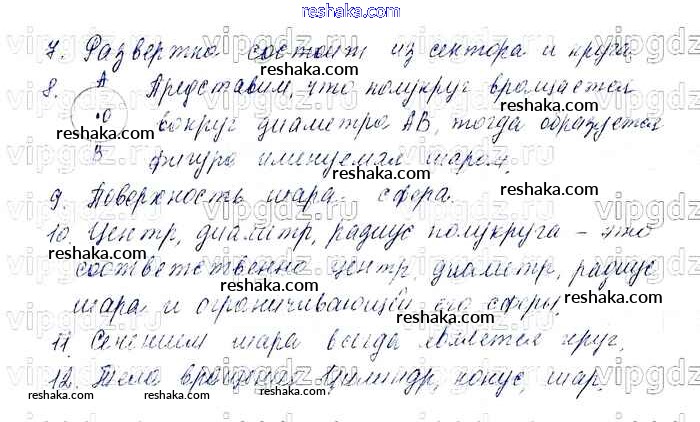 reshaka.com
7. Развертка состоит из сектора и круга
reshaka.com
8. А Представим, что полукруг вращается
О вокруг диаметра АВ, тогда образуется
reshaka.com reshaka.com
В фигура именуемая шаром.
reshaka.com
9. Поверхность шара - сфера.
reshaka.com reshaka.com
10. Центр, диаметр, радиус полукруга – это
reshaka.com
соответственно центр, диаметр, радиус
reshaka.com reshaka.com
шара и ограничивающей его сферы.
reshaka.com
11. Сечением шара всегда является круг.
reshaka.com reshaka.com
12. Тела вращения: цилиндр, конус, шар.
reshaka.com reshaka.com
vipgdz.ru